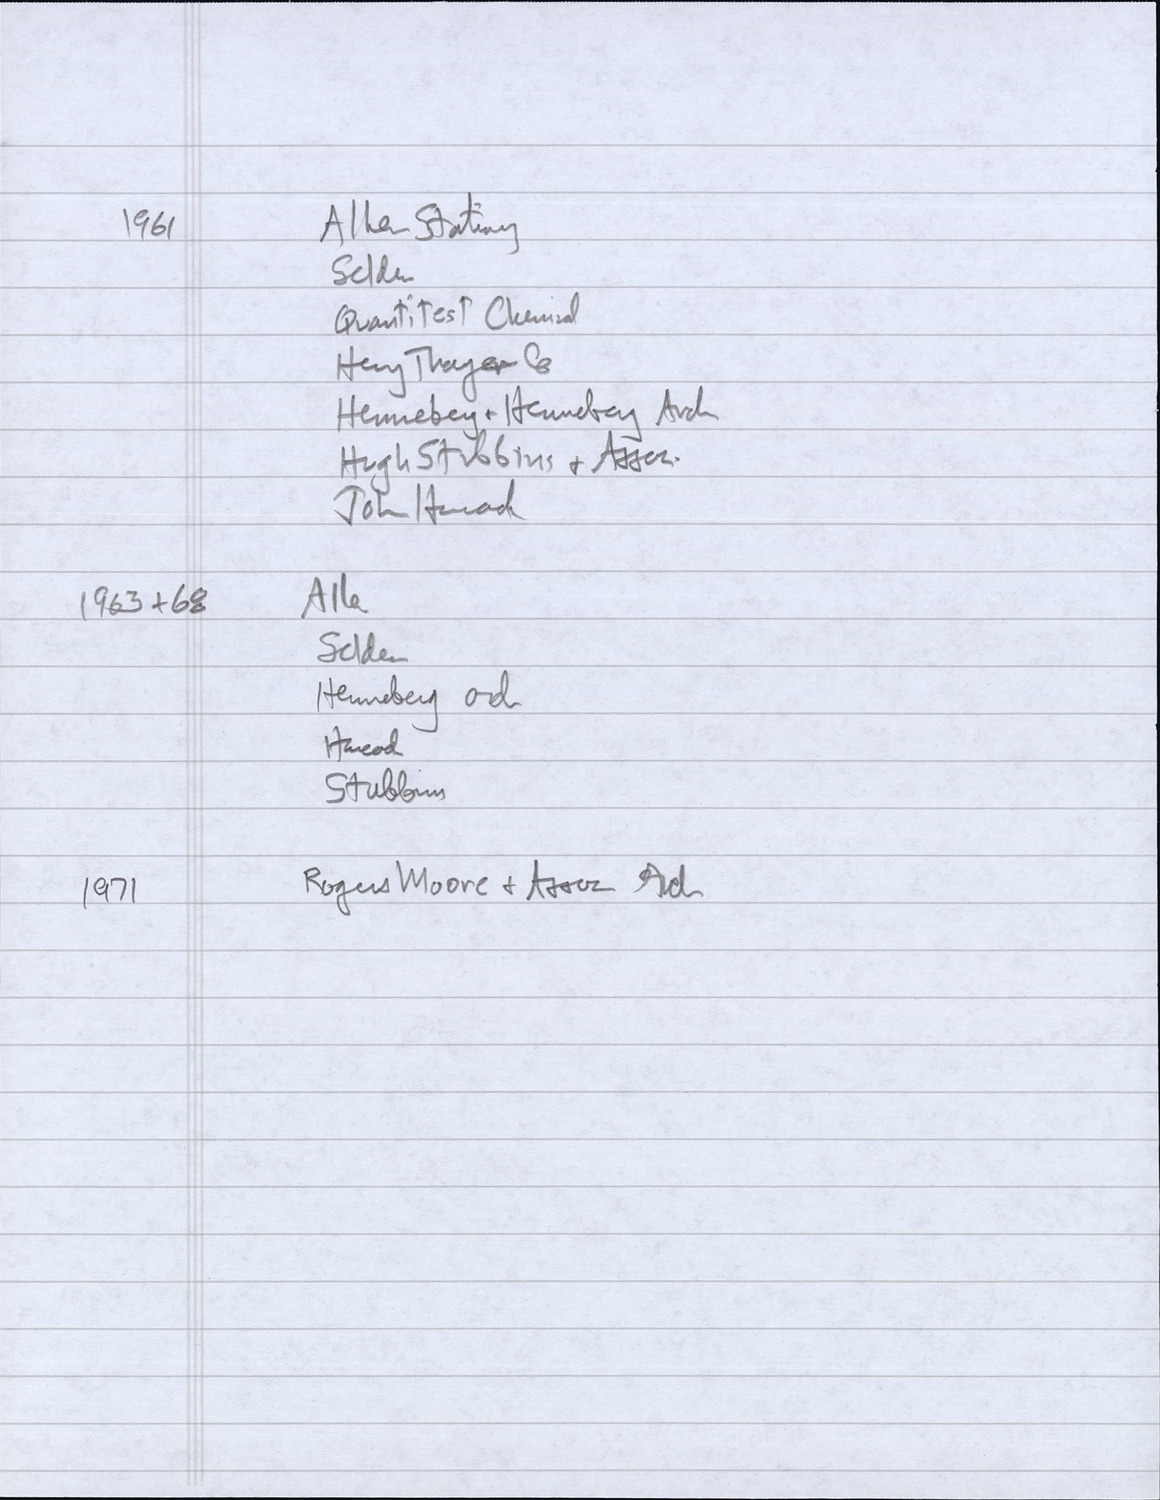 1961 Allen Stationery
Selden
Quantitest Chemical
Henry Thayer Co
Henneberg + Henneberg Arch
Hugh Stubbins + Assoc.
John Harvard
1963 + 68 Allen
Selden
Henneberg arch
Harvard
Stubbins
1971 Rogers Moore + Assoc Arch